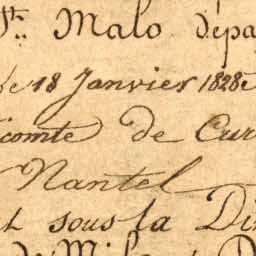 St. Malo dépa
le 18 Janvier 1828
icomte de Cur
Nantel
t sous la Di